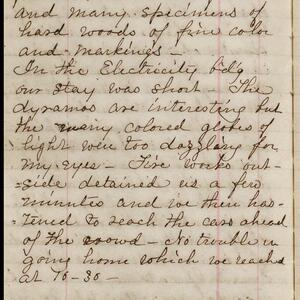 and many specimens of
hard woods of fine color
and markings –
In the Electricity bldg
our stay was short – The
dynamos are interesting but
the many colored globes of
light were too dazzlang for
my eyes – Fire works out-
side detained us a few
minutes and we then has-
tened to reach the cars ahead
of the crowd – No trouble in
going home which we reached
at 10-30 –